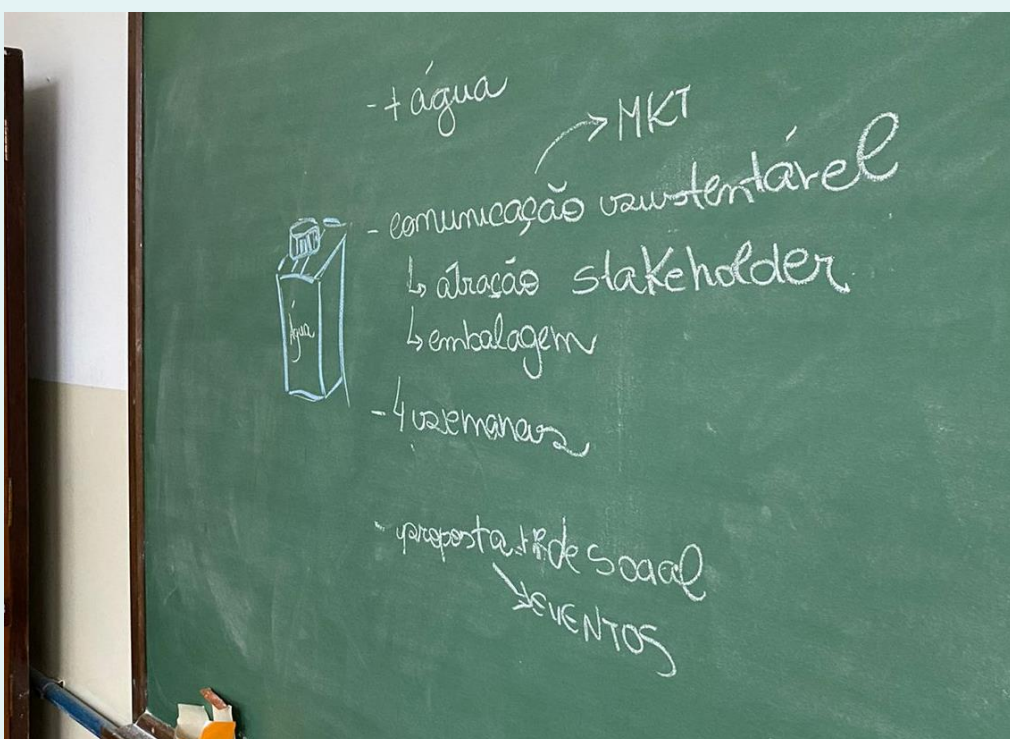 - + água
MKT
- comunicação sustentável
↳ atração stakeholder
↳ embalagem
Água
- 4 semanas
- proposta rede social
EVENTOS